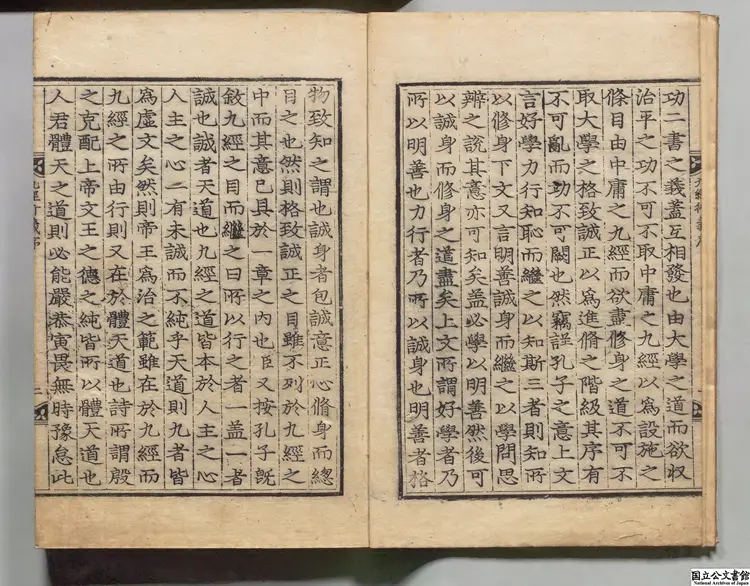 功二書之義蓋互相發也由大學之道而欲収
治平之功不可不取中庸之九經以爲設施之
條目由中庸之九經而欲盡修身之道不可不
取大學之格致誠正以爲進脩之階級其序有
不可亂而功不可闕也然竊孔子之意上文
言好學力行知恥而繼之以知斯三者則知所
以修身下文又言明善誠身而繼之以學問思
辨之說其意亦可知矣盖必學以明善然後可
以誠身而修身之道盡矣上文所謂好學者乃
所以明善也力行者乃所以誠身也明善者格
物致知之謂也誠身者包誠意正心脩身而緫
目之也然則格致誠正之目雖不列於九經之
中而其意已具於一章之內也臣又按孔子旣
敘九經之目而繼之曰所以行之者一盖一者
誠也誠者天道也九經之道皆本於人主之心
人主之心一有未誠而不純乎天道則九者皆
爲虛文矣然則帝王爲治之範雖在於九經而
九經之所由行則又在於體天道也詩所謂殷
之克配上帝文王之德之純皆所以體天道也
人君體天之道則必能嚴恭寅畏無時豫怠此
国立公文書館
National Archives of Japan